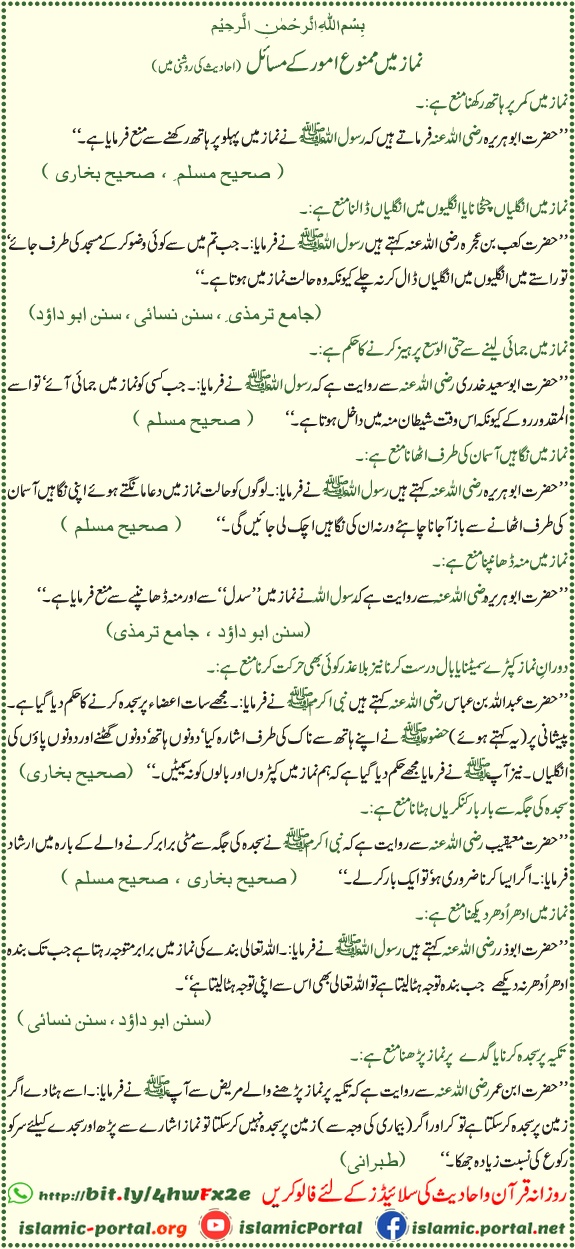 بِسْمِ اللهِ الرَّحْمٰنِ الرَّحِيْمِ
نماز میں ممنوع امور کے مسائل (احادیث کی روشنی میں)
نماز میں کمر پر ہاتھ رکھنا منع ہے:۔
’’حضرت ابو ہریرہ رضی اللہ عنہ فرماتے ہیں کہ رسول اللہ ﷺ نے نماز میں پہلو پر ہاتھ رکھنے سے منع فرمایا ہے۔‘‘
( صحیح مسلم ، صحیح بخاری )
نماز میں انگلیاں چٹخانا یا انگلیوں میں انگلیاں ڈالنا منع ہے:۔
’’حضرت کعب بن عجرہ رضی اللہ عنہ کہتے ہیں رسول اللہ ﷺ نے فرمایا:۔ جب تم میں سے کوئی وضو کر کے مسجد کی طرف جائے‘
تو راستے میں انگلیوں میں انگلیاں ڈال کر نہ چلے کیونکہ وہ حالت نماز میں ہوتا ہے۔‘‘
(جامع ترمذی ، سنن نسائی ، سنن ابو داؤد)
نماز میں جمائی لینے سے حتی الوسع پرہیز کرنے کا حکم ہے:۔
’’حضرت ابو سعید خدری رضی اللہ عنہ سے روایت ہے کہ رسول اللہ ﷺ نے فرمایا:۔ جب کسی کو نماز میں جمائی آئے‘ تو اسے
المقدور روکے کیونکہ اس وقت شیطان منہ میں داخل ہوتا ہے۔‘‘ ( صحیح مسلم )
نماز میں نگاہیں آسمان کی طرف اٹھانا منع ہے:۔
’’حضرت ابو ہریرہ رضی اللہ عنہ کہتے ہیں رسول اللہ ﷺ نے فرمایا:۔ لوگوں کو حالت نماز میں دعا مانگتے ہوئے اپنی نگاہیں آسمان
کی طرف اٹھانے سے باز آ جانا چاہئے ورنہ ان کی نگاہیں اچک لی جائیں گی۔‘‘ ( صحیح مسلم )
نماز میں منہ ڈھانپنا منع ہے:۔
’’حضرت ابو ہریرہ رضی اللہ عنہ سے روایت ہے کہ رسول اللہ نے نماز میں ’’سدل‘‘ سے اور منہ ڈھانپنے سے منع فرمایا ہے۔‘‘
(سنن ابو داؤد ، جامع ترمذی)
دورانِ نماز کپڑے سمیٹنا یا بال درست کرنا نیز بلا عذر کوئی بھی حرکت کرنا منع ہے:۔
’’حضرت عبداللہ بن عباس رضی اللہ عنہ کہتے ہیں نبی اکرم ﷺ نے فرمایا:۔ مجھے سات اعضاء پر سجدہ کرنے کا حکم دیا گیا ہے۔
پیشانی پر (یہ کہتے ہوئے) حضور ﷺ نے اپنے ہاتھ سے ناک کی طرف اشارہ کیا‘ دونوں ہاتھ‘ دونوں گھٹنے اور دونوں پاؤں کی
انگلیاں۔ نیز آپ ﷺ نے فرمایا مجھے حکم دیا گیا ہے کہ ہم نماز میں کپڑوں اور بالوں کو نہ سمیٹیں۔‘‘ (صحیح بخاری)
سجدہ کی جگہ سے بار بار کنکریاں ہٹانا منع ہے:۔
’’حضرت معیقیب رضی اللہ عنہ سے روایت ہے کہ نبی اکرم ﷺ نے سجدہ کی جگہ سے مٹی برابر کرنے والے کے بارہ میں ارشاد
فرمایا:۔ اگر ایسا کرنا ضروری ہو‘ تو ایک بار کر لے۔‘‘ ( صحیح بخاری ، صحیح مسلم )
نماز میں ادھر اُدھر دیکھنا منع ہے:۔
’’حضرت ابوذر رضی اللہ عنہ کہتے ہیں رسول اللہ ﷺ نے فرمایا:۔ اللہ تعالی بندے کی نماز میں برابر متوجہ رہتا ہے جب تک بندہ
ادھر اُدھر نہ دیکھے جب بندہ توجہ ہٹا لیتا ہے تو اللہ تعالی بھی اس سے اپنی توجہ ہٹا لیتا ہے‘‘۔
(سنن ابو داؤد ، سنن نسائی)
تکیہ پر سجدہ کرنا یا گدے پر نماز پڑھنا منع ہے:۔
’’حضرت ابن عمر رضی اللہ عنہ سے روایت ہے کہ تکیہ پر نماز پڑھنے والے مریض سے آپ ﷺ نے فرمایا:۔ اسے ہٹا دے اگر
زمین پر سجدہ کر سکتا ہے تو کر اور اگر (بیماری کی وجہ سے) زمین پر سجدہ نہیں کر سکتا تو نماز اشارے سے پڑھ اور سجدے کیلئے سر کو
رکوع کی نسبت زیادہ جھکا۔‘‘ (طبرانی)
روزانہ قرآن و احادیث کی سلائیڈز کے لئے فالو کریں http://bit.ly/4hwFx2e
islamic-portal.org islamicPortal islamic.portal.net